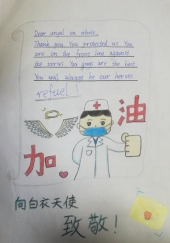 Dear angel in white,
Thank you. You protected us. You
are on the front line against
the virus. You guys are the best.
You will always be our heroes.
refuel!
加油
向白衣天使
致敬!